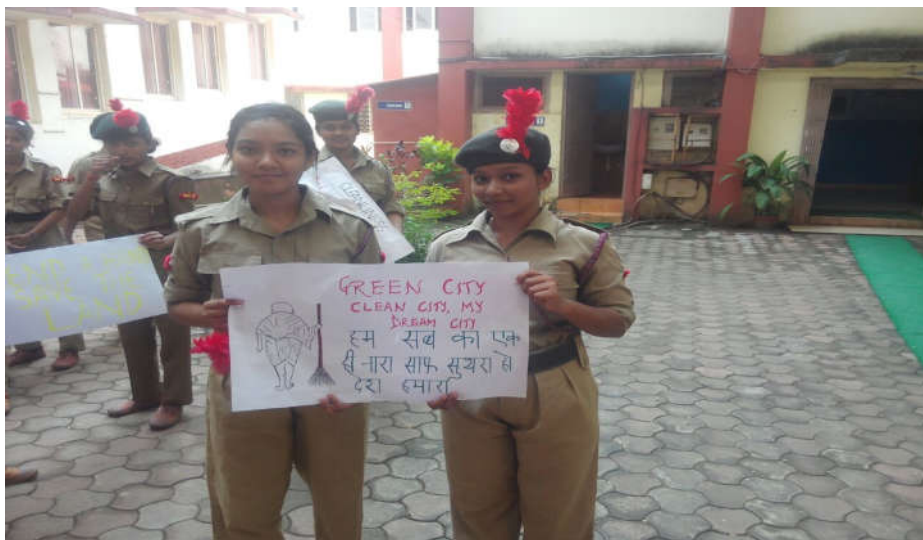 GREEN CITY
CLEAN CITY, MY
DREAM CITY
हम सब का एक
ही नारा साफ सुथरा हो
देश हमारा
LAND